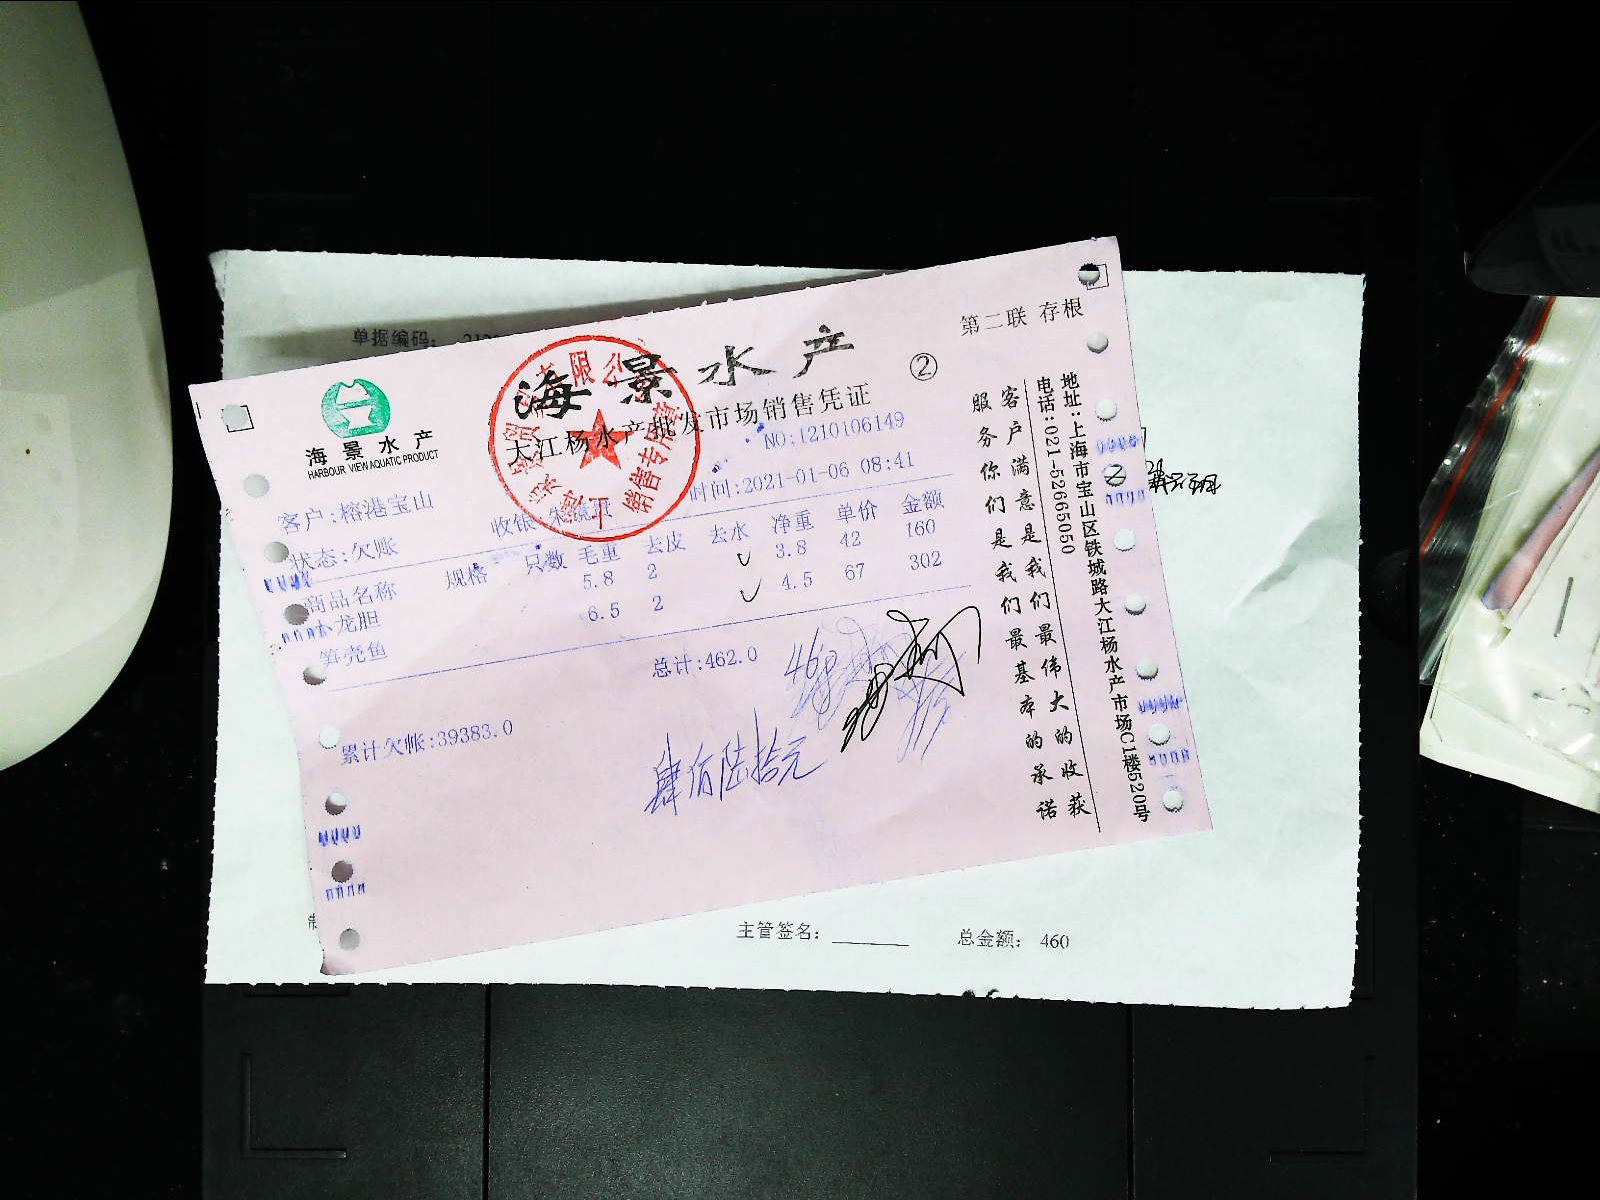 单据编码:
第二联 存根
海景水产
②
大江杨水产批发市场销售凭证
海景水产
HARBOUR VIEW AQUATIC PRODUCT
NO:1210106149
客户:榕港宝山
收银
时间:2021-01-06 08:41
状态:欠账
商品名称 规格 只数 毛重 去皮 去水 净重 单价 金额
小龙胆 5.8 2 3.8 42 160
笋壳鱼 6.5 2 4.5 67 302
总计:462.0
460
累计欠帐:39383.0
肆佰陆拾元
客户满意是我们最伟大的收获
服务你们是我们最基本的承诺
地址:上海市宝山区铁城路大江杨水产市场C1楼520号
电话:021-52665050
有限公
销售专用章
主管签名:
总金额: 460